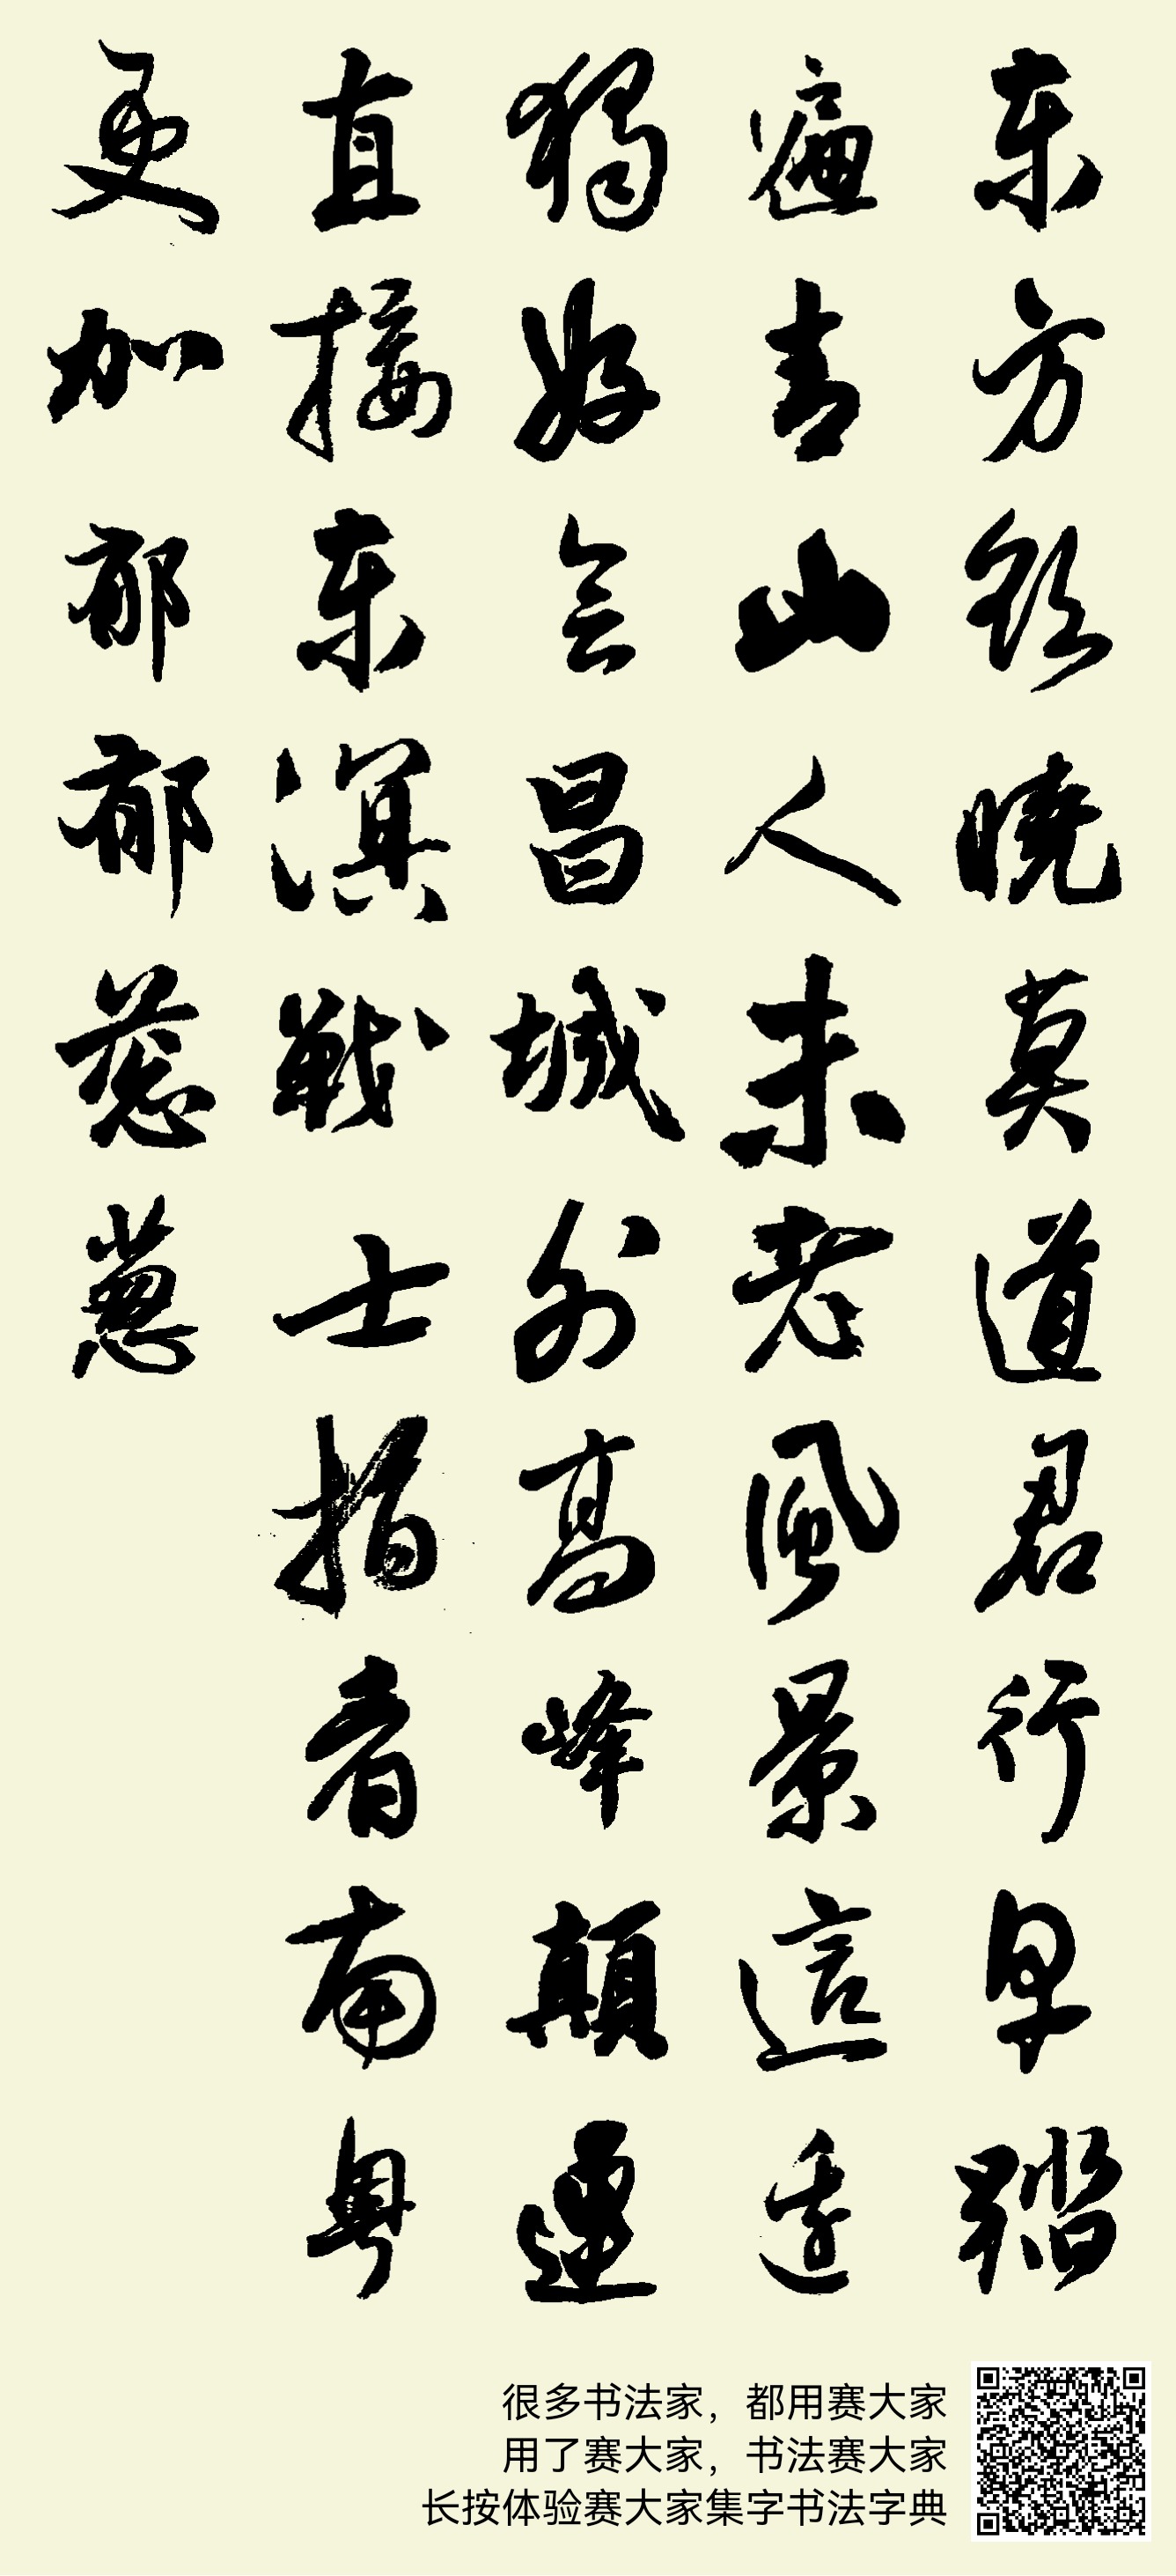 东方欲晓莫道君行早踏
遍青山人未老風景這边
獨好会昌城外高峰顛連
直接东溟戰士指看南粤
更加郁郁葱葱
很多书法家，都用赛大家
用了赛大家，书法赛大家
长按体验赛大家集字书法字典